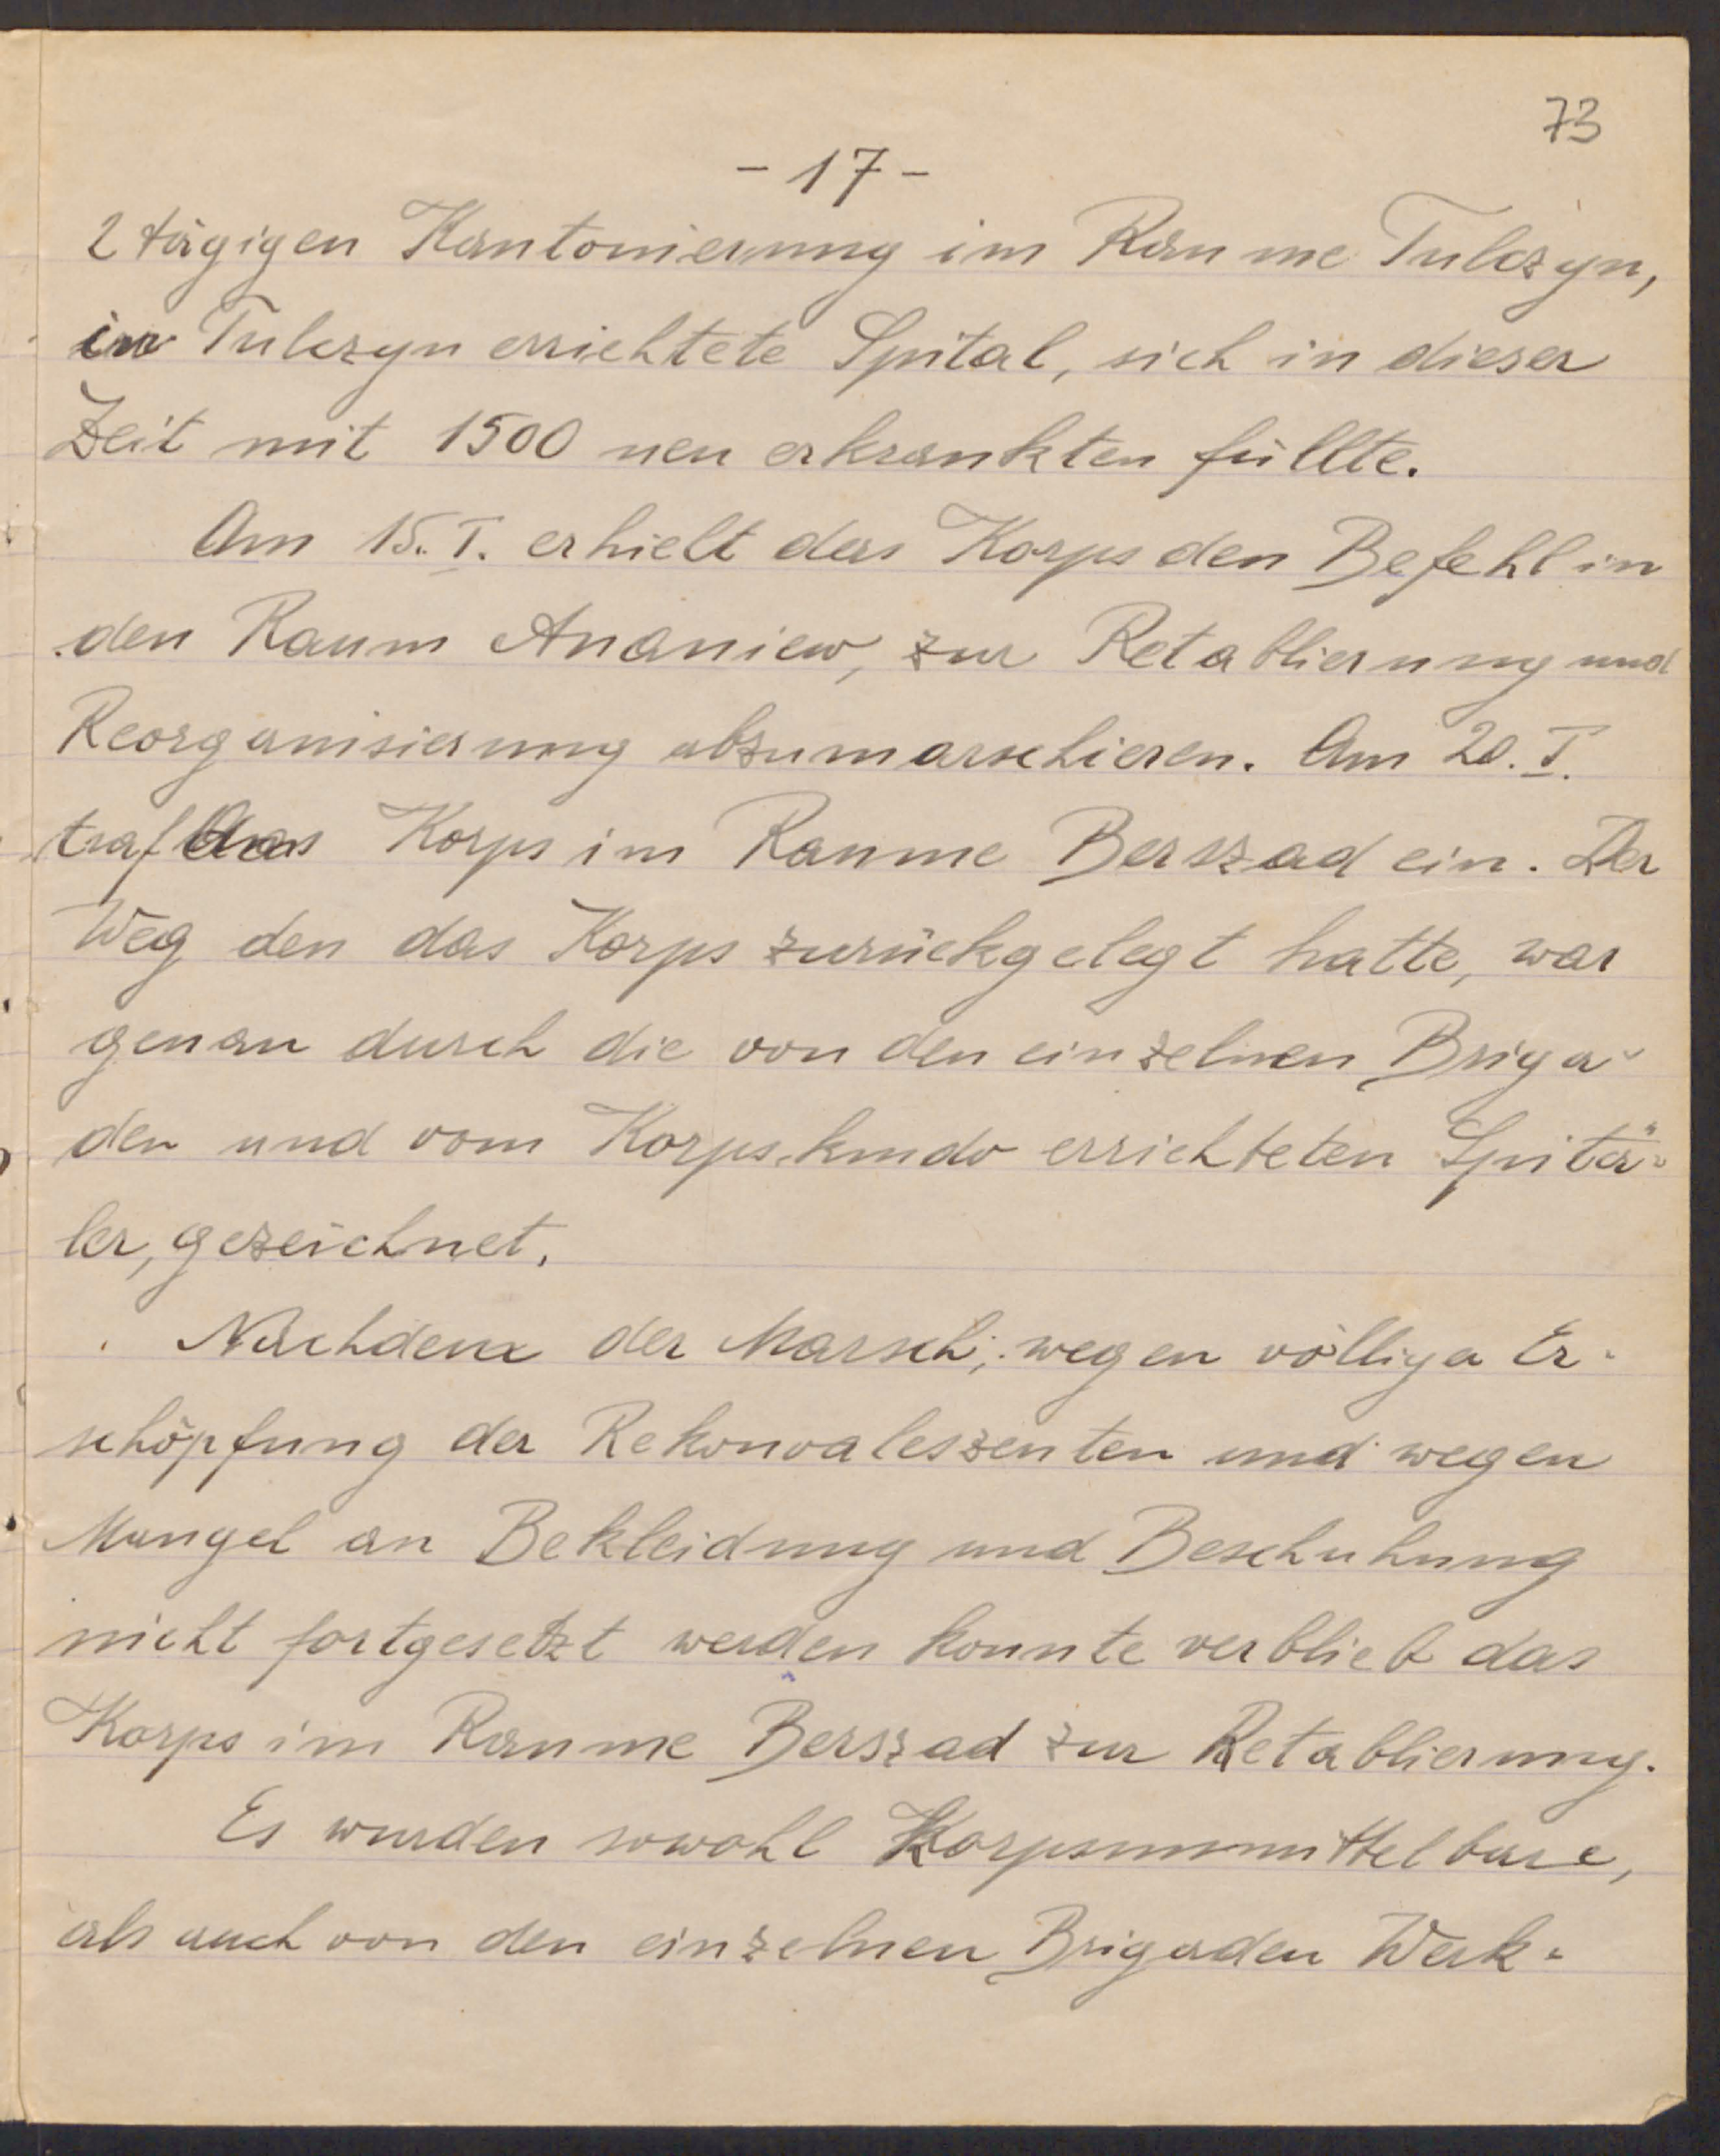 73
- 17 -
2 tägigen Kantonierung im Raume Tulczyn,
in Tulczyn errichtete Spital, sich in dieser
Zeit mit 1500 neu erkrankten füllte.
Am 15. I. erhielt das Korps den Befehl in
den Raum Ananiew, zur Retablierung und
Reorganisierung abzumarschieren. Am 20. I.
traf das Korps im Raume Berszad ein. Der
Weg den das Korps zurückgelegt hatte, war
genau durch die von den einzelnen Briga-
den und vom Korpskmdo errichteten Spitä-
ler, gezeichnet.
Nachdem der Marsch, wegen völliger Er-
schöpfung der Rekonvaleszenten und wegen
Mangel an Bekleidung und Beschuhung
nicht fortgesetzt werden konnte verblieb das
Korps im Raume Berszad zur Retablierung.
Es wurden sowohl Korpsunmittelbare,
als auch von den einzelnen Brigaden Werk-